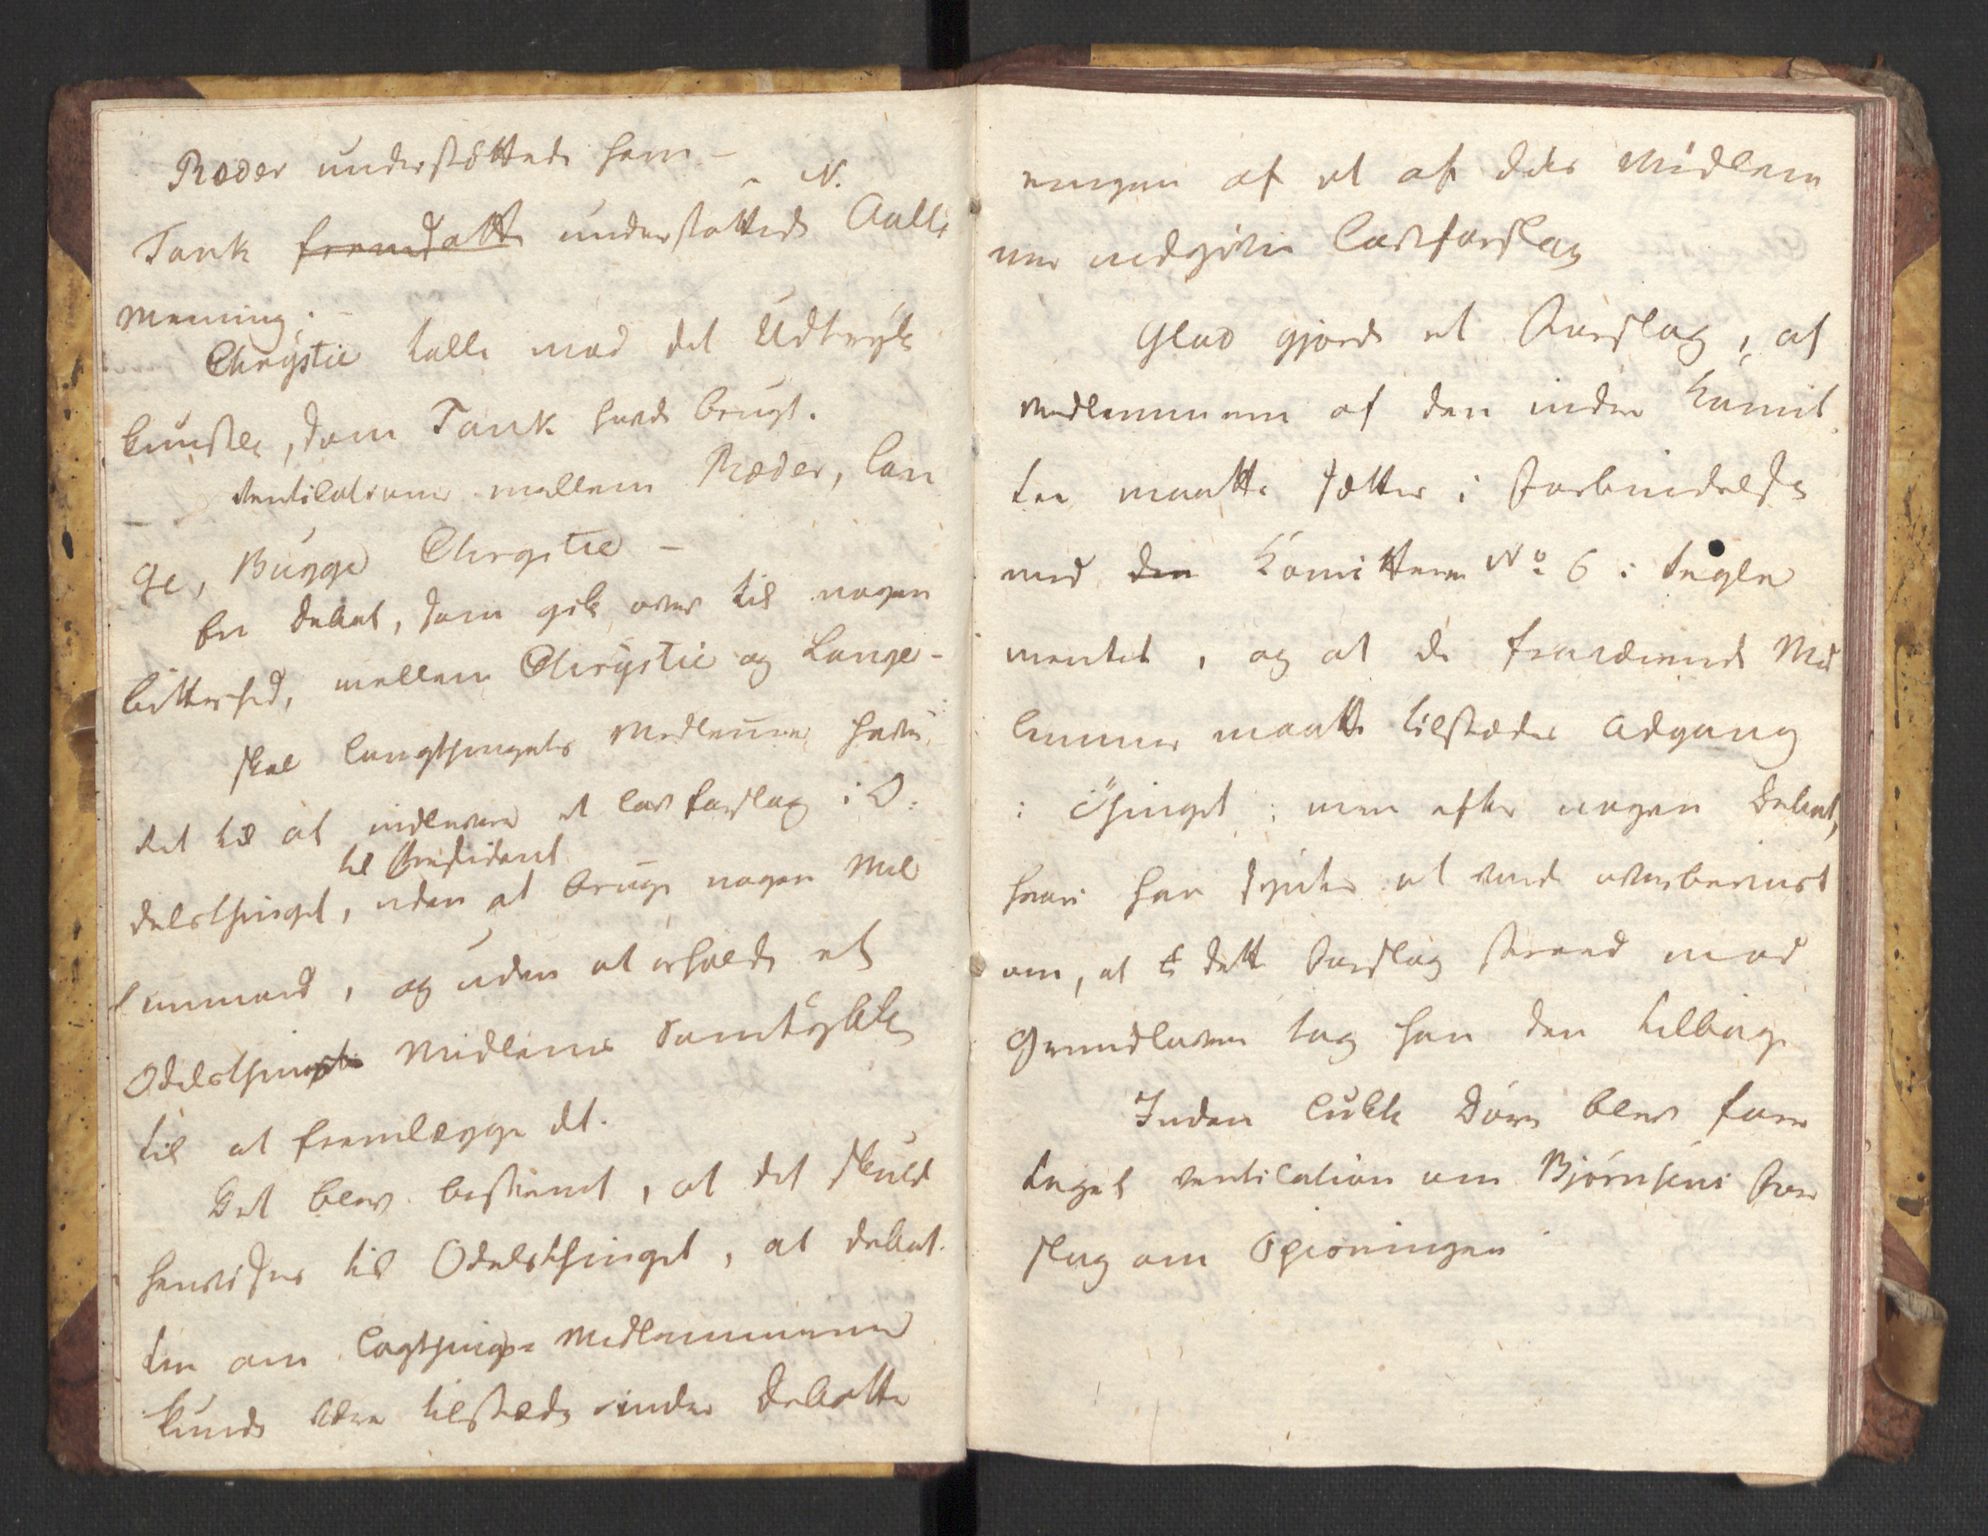 Ræder understöttede ham –
Tank fremsatte understøttede N. Aalls
Mening. –
Chrystie talte mod det Udtryk
kunstler, som Tank havde brugt.
Ventilationer mellem Ræder, Lan
ge, Bugge Chrystie –
En Debat, som gik over til nogen
bitterhed, mellem Chrystie og Lange –
Skal Langthingets Medlemmer have
det til at indlevere et lovforslag i O:
til Præsident
delsthinget, uden at bruge nogen Mel
lemmand, og uden at erholde et
Odelsthings Medlems Samtykke
til at fremlægge det.
Det blev bestemt, at det skulde
henvises til Odelsthinget, at debat-
tere om Lagthings-Medlemmerne
kunde være tilstæde under Debatte
ringen af et af dets Medlem
mer indgiven Lovforslag
Glad gjorde et Forslag, at
Medlemmerne af den indre Komit
tee maatte sættes i Forbindelse
med den Komitteen No 6 i Regle
mentet, og at de fraværende Med
lemmer maatte tilstædes Adgang
i Othinget; men efter nogen Debat,
hvori han syntes at være overbeviist
om, at dette Forslag streed mod
Grundloven tog han den tilbage
Inden lukte Døre blev fore
taget Ventilation om Bjørnsens For
slag om Spioneringen